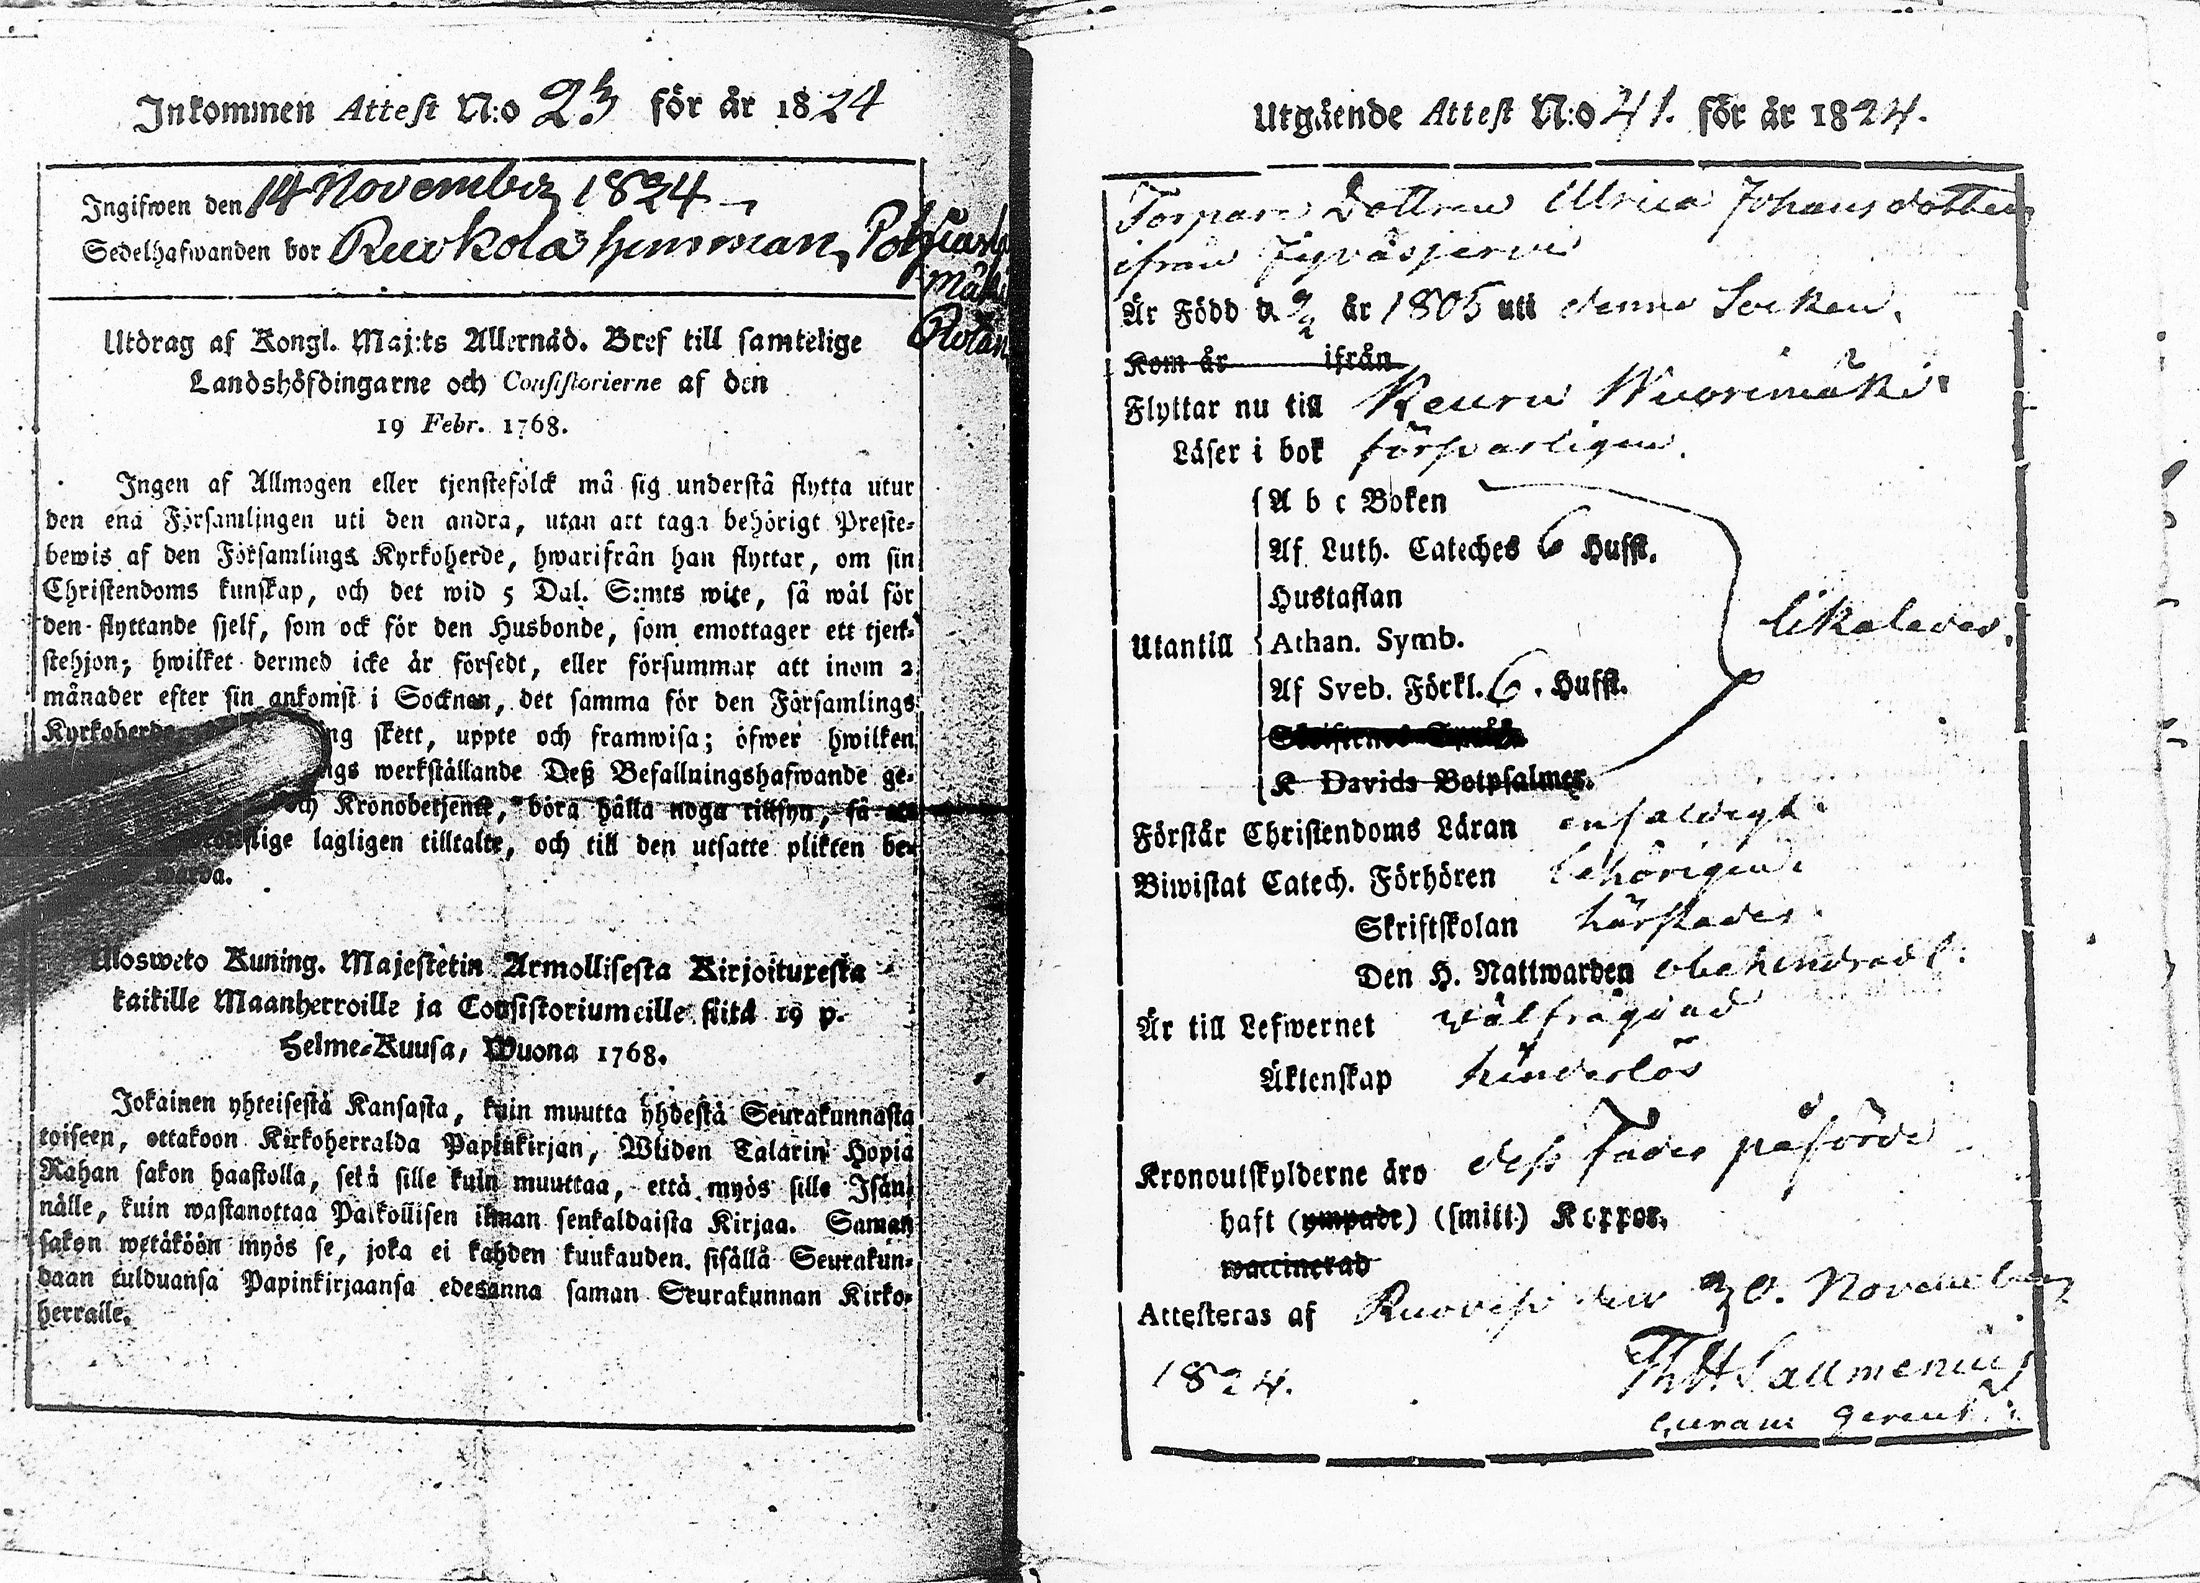 Inkommen Attest N:o 23 för år 1824
Ingifwen den 14 November 1824
Sedelhafwanden bor
Utdrag af Kongl. Maj:ts Allernåd. Bref till samtelige
Landshöfdingarne och Consistorierne af den
19 Febr. 1768.
Ingen af Allmogen eller tjenstefolck må sig understå flytta utur
den ena Församlingen uti den andra, utan att taga behörigt Preste-
bewis af den Församlings Kyrkoherde, hwarifrån han flyttar, om sin
Christendoms kunskap, och det wid 5 Dal. S:mts wite, så wäl för
den flyttande sjelf, som ock för den Husbonde, som emottager ett tjen-
stehjon; hwilket dermed icke är försedt, eller försummar att inom 2
månader efter sin ankomst i Socknen, det samma för den Församlings
Kyrkoherde skett, uppte och framwisa; öfwer hwilken
werkställande Deß Befallningshafwande ge-
och Kronobetjente, böra hålla noga tillsyn, så att
lagligen tilltalte, och till den utsatte plikten be-
warda.
Ulosweto Kuning. Majestetin Armollisesta Kirjoituxesta
kaikille Maanherroille ja Consistoriumeille siitä 19 p.
Helme-Kuusa, Wuona 1768.
Jokainen yhteisestä Kansasta, kuin muutta yhdestä Seurakunnasta
toiseen, ottakoon Kirkoherralda Papinkirjan, Wliden Talarin Hopia
Rahan sakon haastolla, sekä sille kuin muuttaa, että myös sille Isän-
nälle, kuin wastanottaa Palkollisen ilman senkaldaista Kirjaa. Saman
sakon wetäköön myös se, joka ei kahden kuukauden sisällä Seurakun-
daan tulduansa Papinkirjaansa edesanna saman Seurakunnan Kirko-
herralle.
Utgående Attest N:o 41. för år 1824.
Torpare Dottren Ulrica Johansdotter
ifrån Jyväsjervi
Är Född d. 9/2 år 1805 uti denne Socken.
Kom år ifrån
Flyttar nu till Keuru Wuorimäki
Läser i bok försvarligen.
A b c Boken
Af Luth. Cateches 6 Hufst.
Hustaflan
Utantill Athan. Symb. likaledes.
Af Sveb. Förkl. 6. Hufst.
K Davids Botpsalmer.
Förstår Christendoms Läran enfaldigt.
Biwistat Catech. Förhören behörigen.
Skriftskolan härstädes.
Den H. Nattwarden obehindradt.
Är till Lefwernet wälfrägdad
Äktenskap hinderlös
Kronoutskylderne äro dess Fader påförde
haft (ympade) (smitt) Koppor.
waccinerad
Attesteras af Ruovesi den 30. November
1824. Th H Sallmenius
curam gerens.